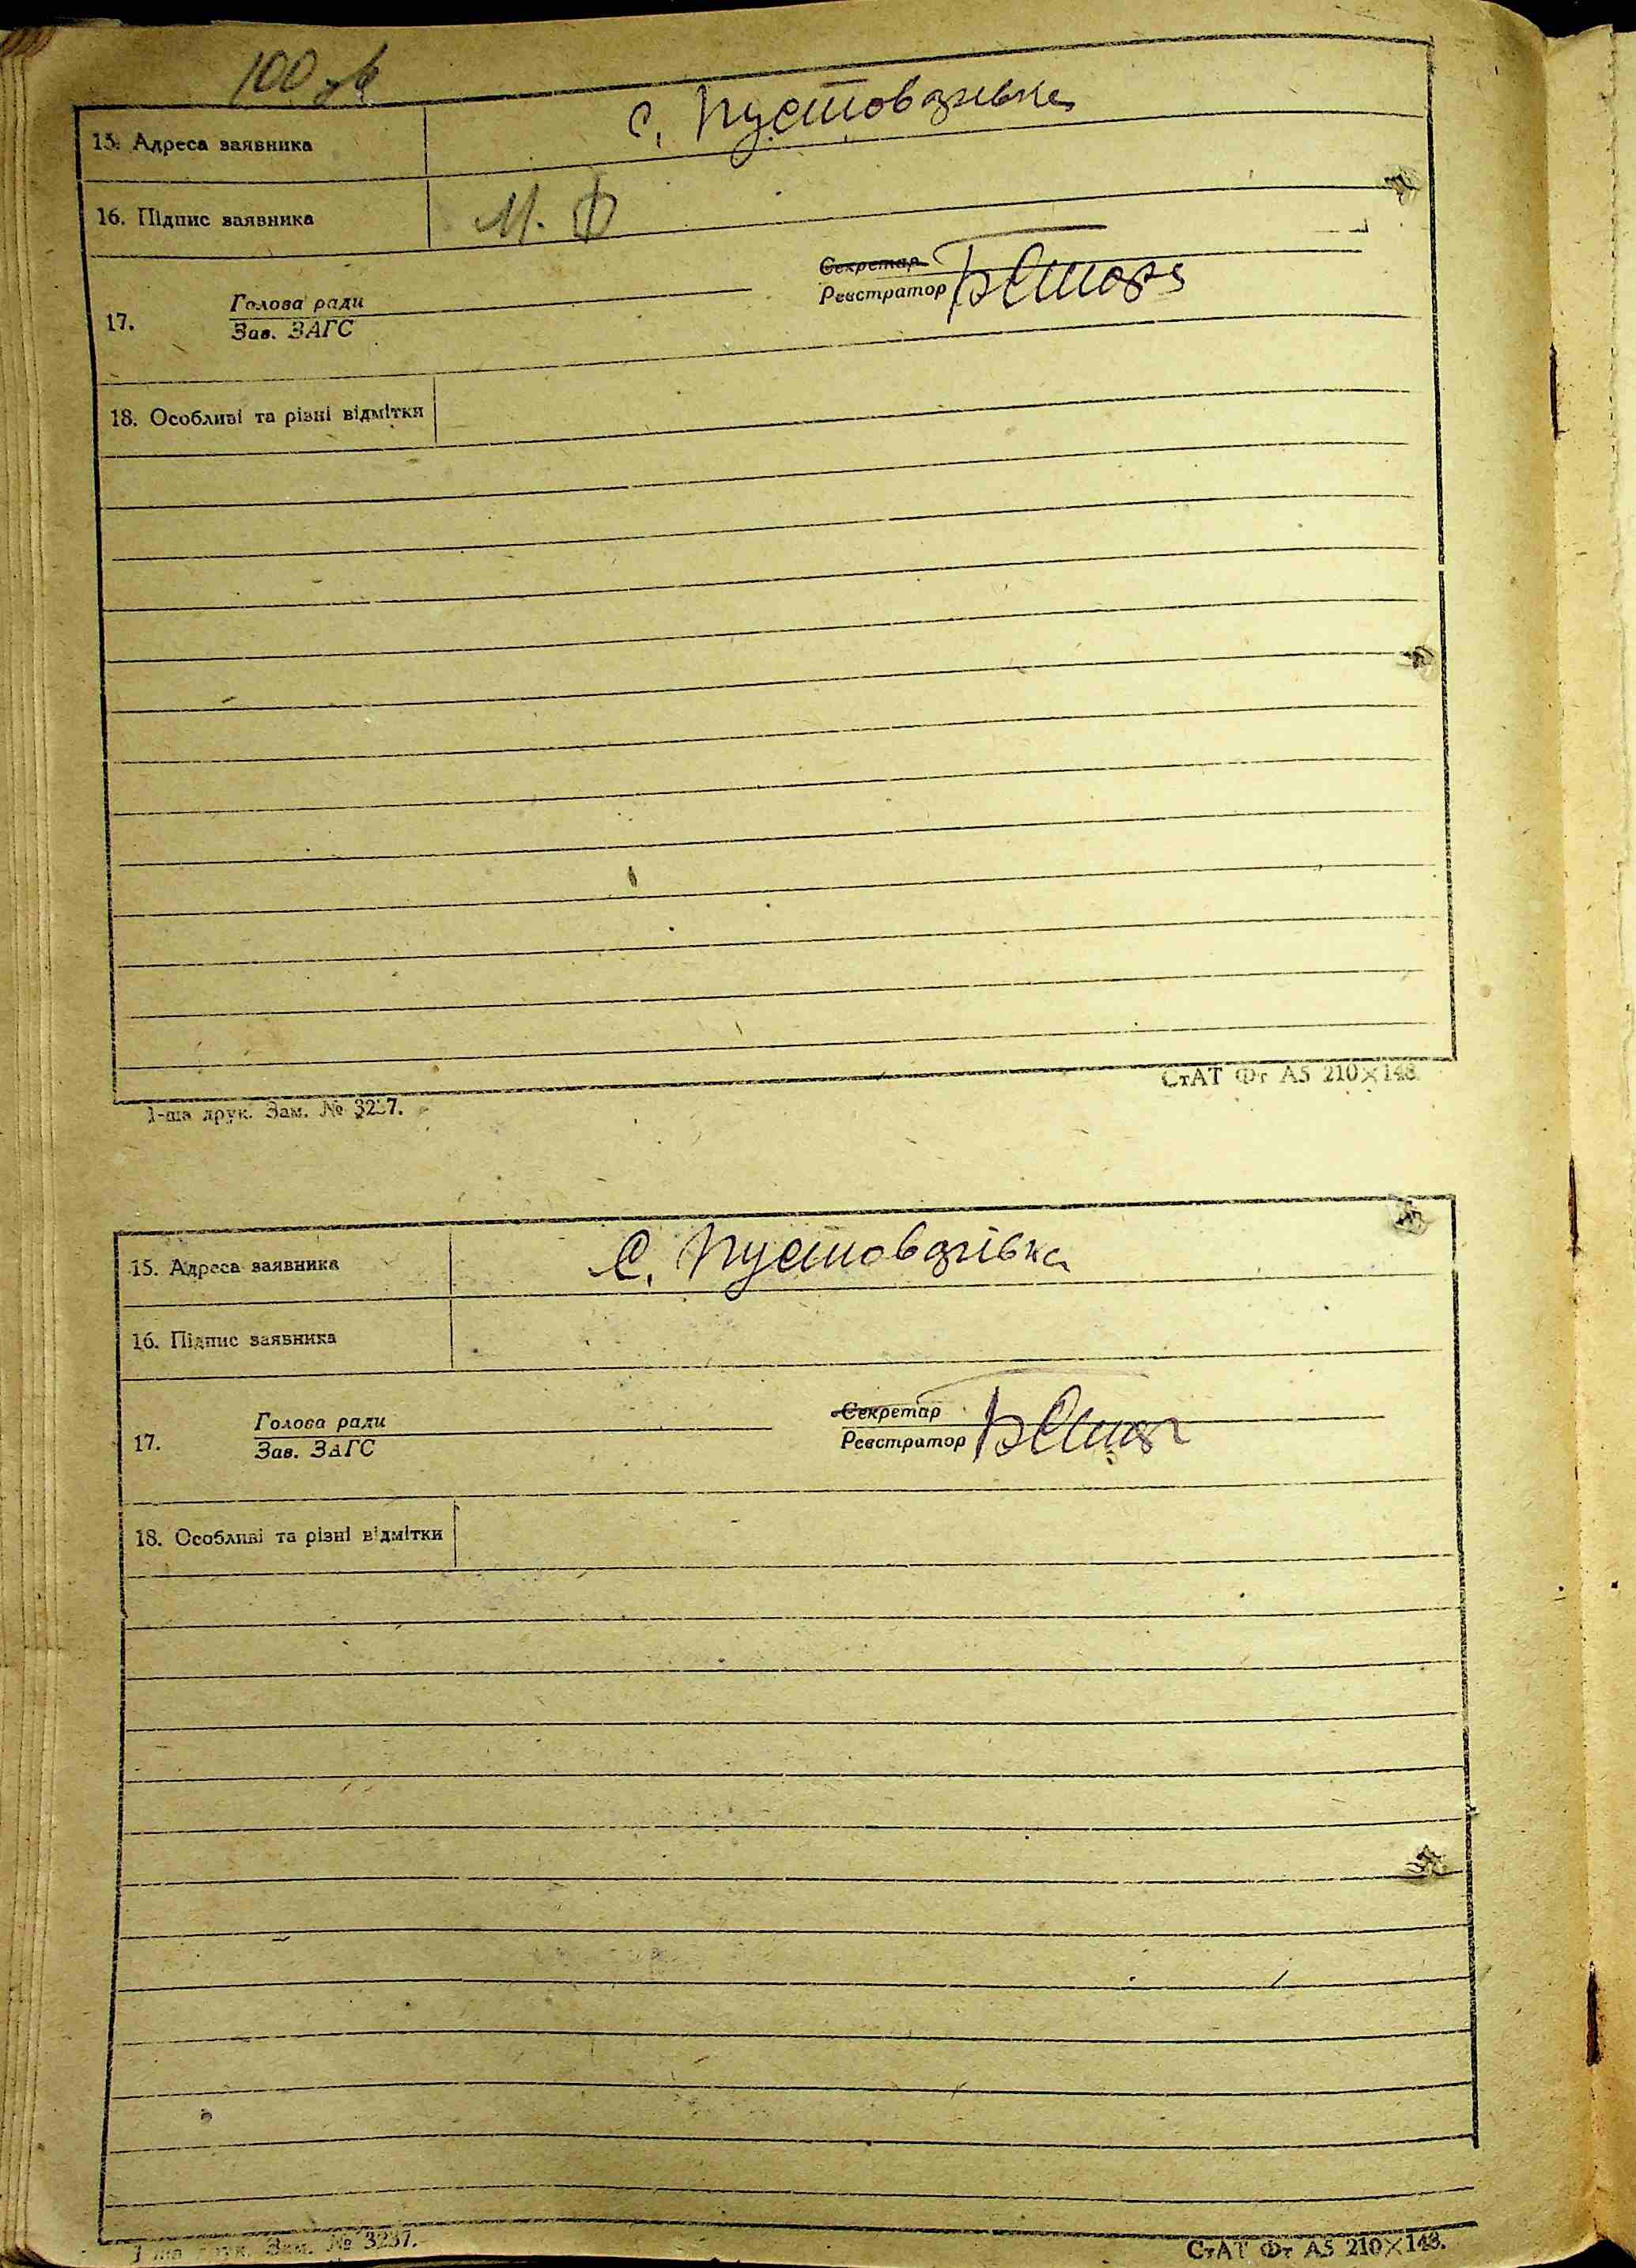 100 зв
15. Адреса заявника с. Пустоварівка
16. Підпис заявника М. Ф
Секретар
Голова ради Реєстратор
17.
Зав. ЗАГС
18. Особливі та різні відмітки
СтАТ Фт А5 210×148
1-ша друк. Зам. № 3237.
15. Адреса заявника С. Пустоварівка
16. Підпис заявника
Секретар
Голова ради
17. Реєстратор
Зав. ЗАГС
18. Особливі та різні відмітки
1-ша друк. Зам. № 3237.
СтАТ Фт А5 210×148.